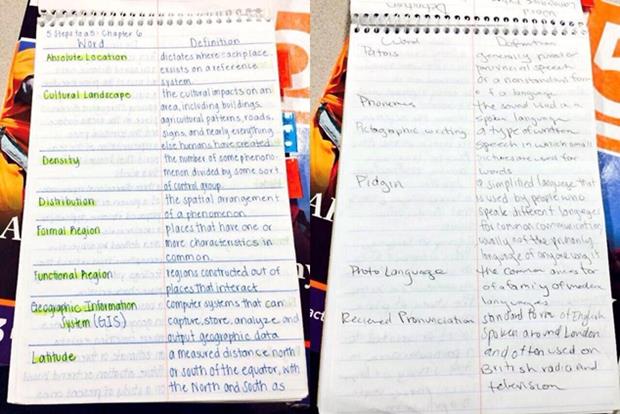 5 Steps to a 5: Chapter 6
Word Definition
Absolute Location dictates where each place
exists on a reference
system.
Cultural Landscape the cultural impacts on an
area, including buildings,
agricultural patterns, roads,
signs, and nearly everything
else humans have created.
Density the number of some pheno-
menon divided by some sort
of control group.
Distribution the spatial arrangement
of a phenomenon.
Formal Region places that have one or
more characteristics in
common.
Functional Region regions constructed out of
places that interact
Geographic Information computer systems that can
System (GIS) capture, store, analyze and
output geographic data
Latitude a measured distance north
or south of the equator, with
the North and South as
Word Definition
generally rural or
provincial speech
or a nonstandard form
of a language.
Phonemes the sound used in a
spoken language
Pictographic writing a type of written
speech in which small
pictures are used for
words
Pidgin a simplified language that
is used by people who
speak different languages
for common communication,
usually not the primary
language of anyone using it
Proto Language the common ancestor
of a family of modern
languages
Recieved Pronunciation standard form of English
spoken around London
and often used on
British radio and
television